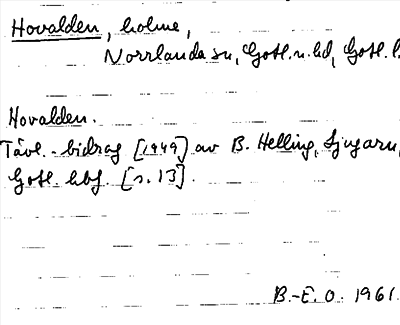 Hovalden, holme,
Norrlanda sn, Gotl. n. hd, Gotl. l.
Hovalden.
Tävl.-bidrag [1949] av B. Helling, Ljugarn,
Gotl. hbf. [s. 13].
B.-E. O. 1961.